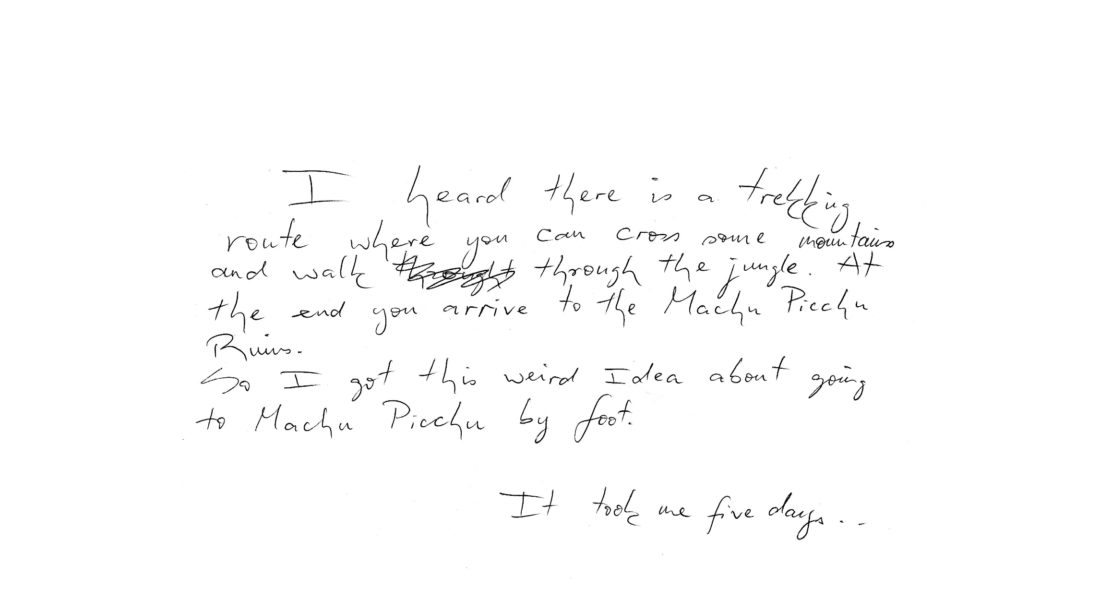 I heard there is a trekking
route where you can cross some mountains
and walk through the jungle. At
the end you arrive to the Machu Picchu
Ruins.
So I got this weird Idea about going
to Machu Picchu by foot.
It took me five days...